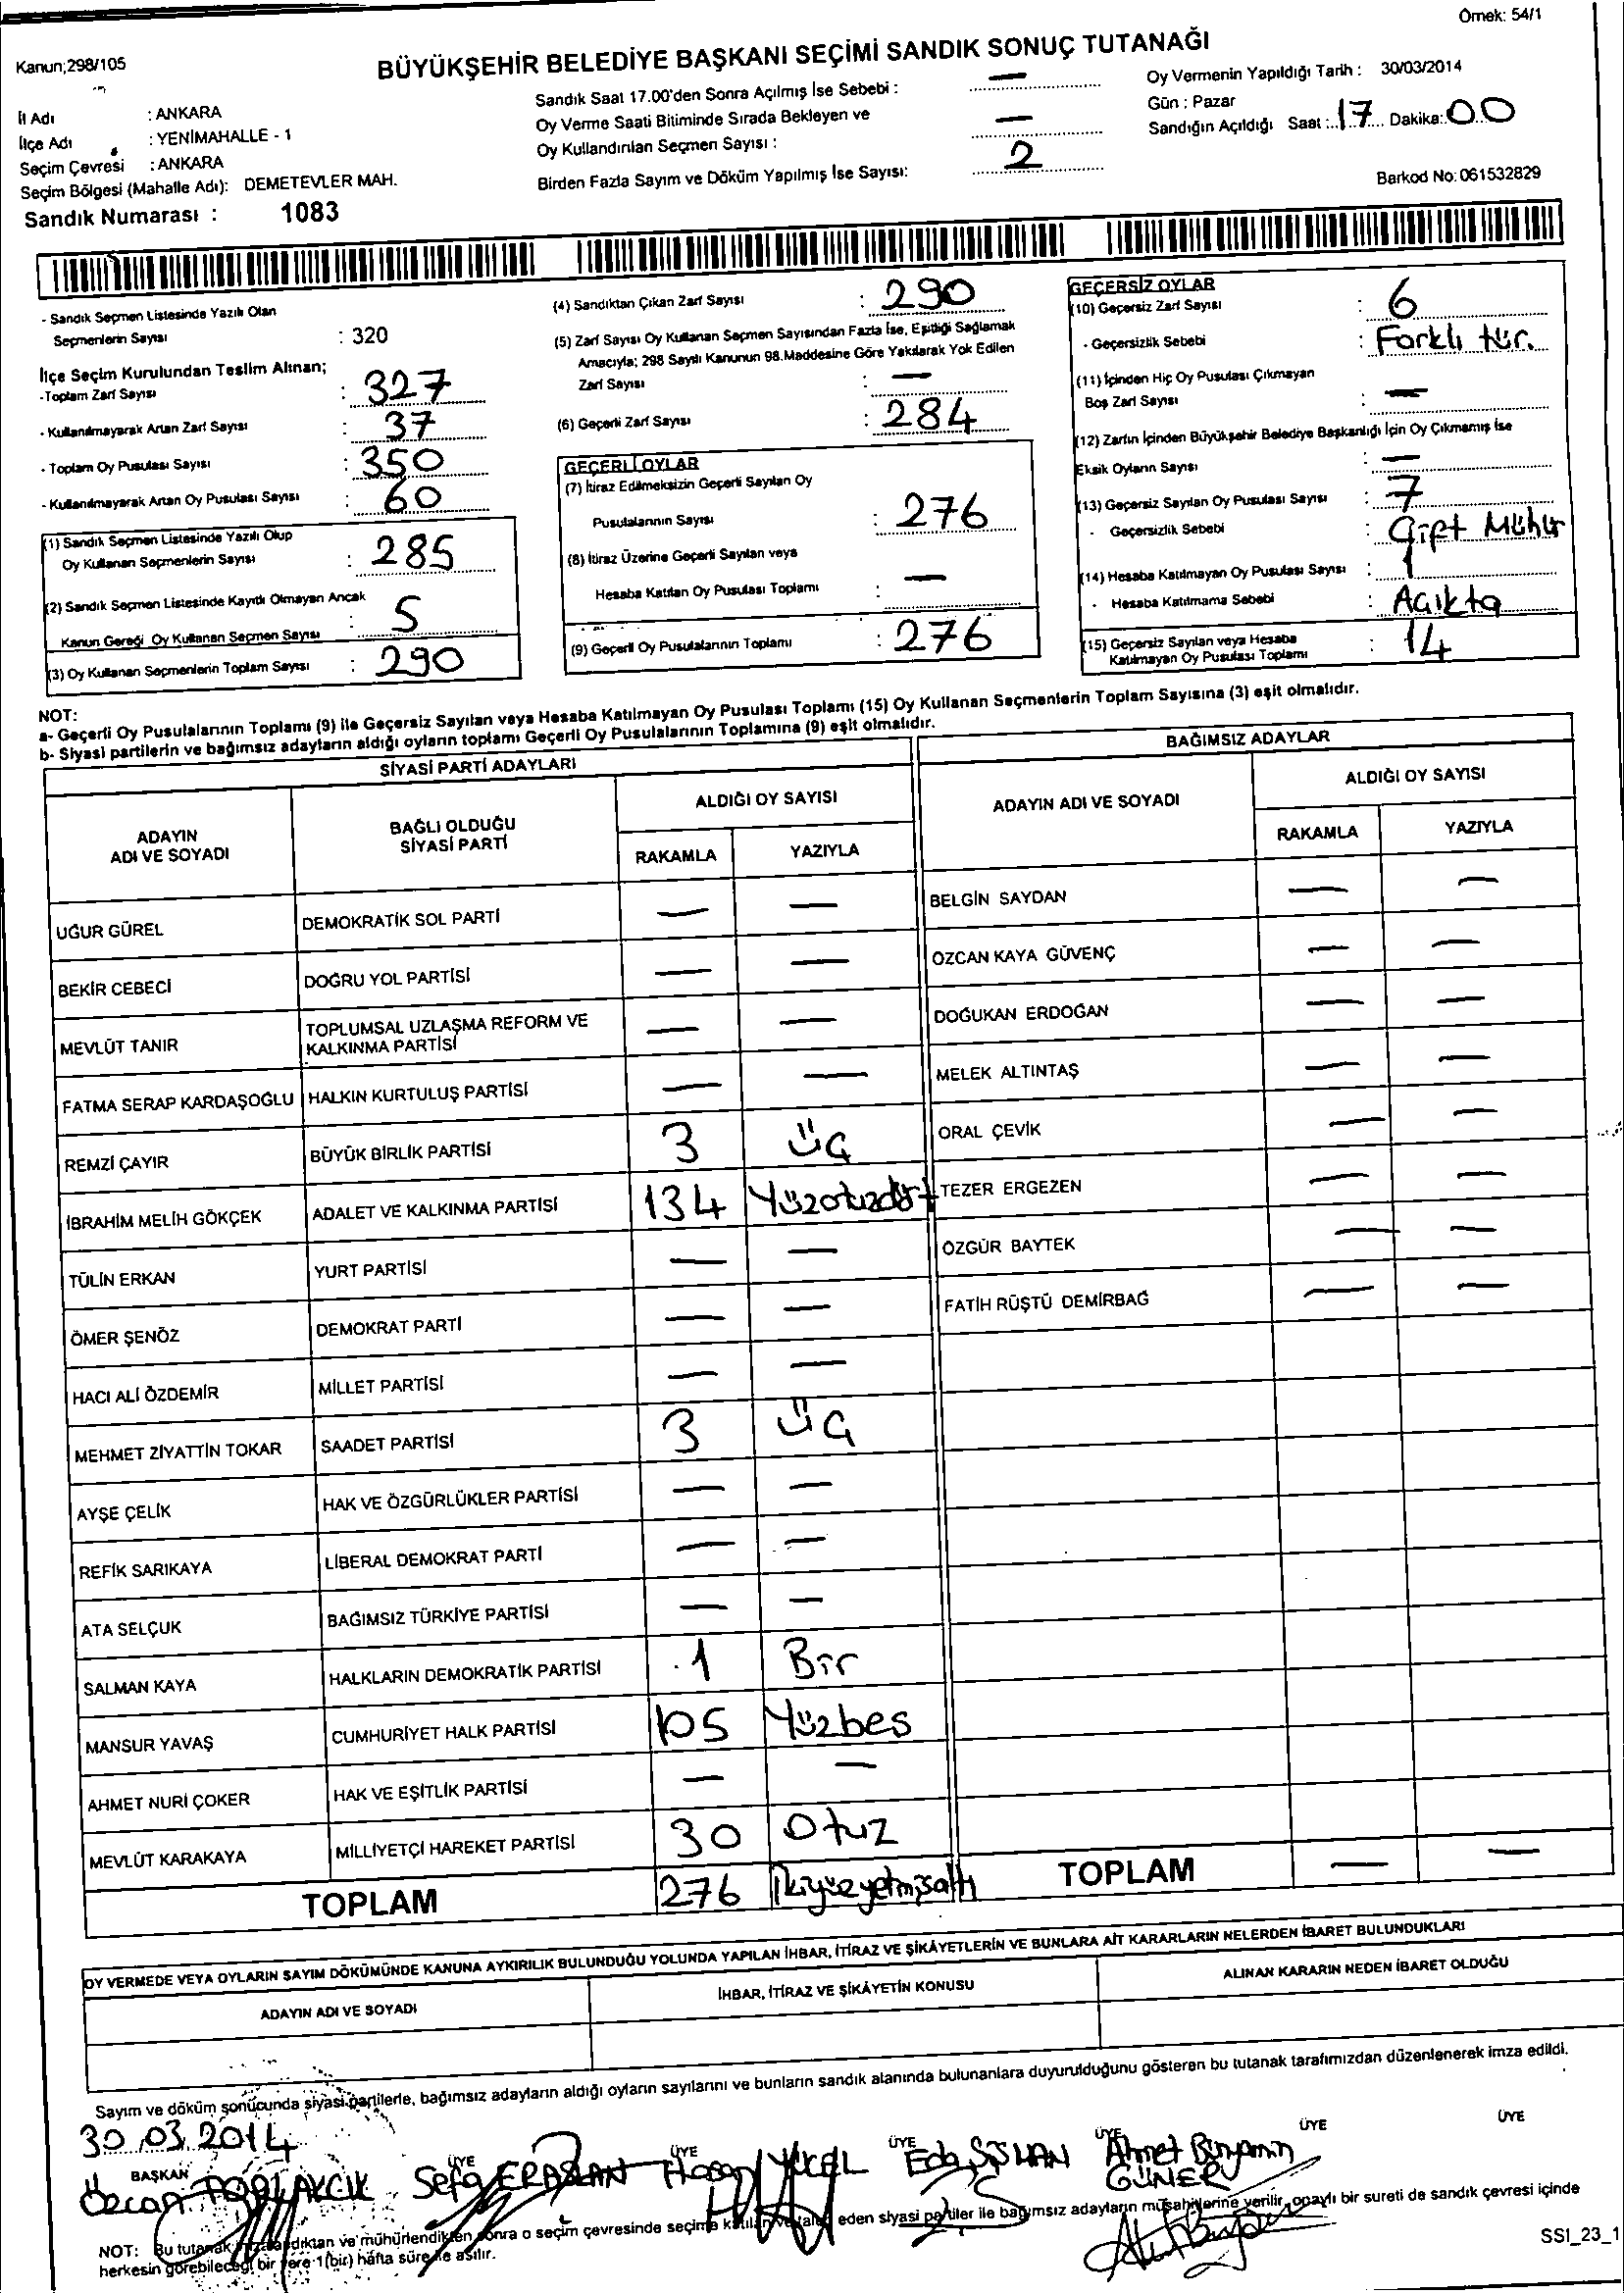 Örnek: 54/1
Kanun;298/105
BÜYÜKŞEHİR BELEDİYE BAŞKANI SEÇİMİ SANDIK SONUÇ TUTANAĞI
İl Adı : ANKARA
İlçe Adı : YENİMAHALLE - 1
Seçim Çevresi : ANKARA
Seçim Bölgesi (Mahalle Adı): DEMETEVLER MAH.
Sandık Numarası : 1083
Sandık Saat 17.00'den Sonra Açılmış İse Sebebi : —
Oy Verme Saati Bitiminde Sırada Bekleyen ve
Oy Kullandırılan Seçmen Sayısı : —
Birden Fazla Sayım ve Döküm Yapılmış İse Sayısı: 2
Oy Vermenin Yapıldığı Tarih : 30/03/2014
Gün : Pazar
Sandığın Açıldığı Saat : 17 Dakika: 00
Barkod No: 061532829
- Sandık Seçmen Listesinde Yazılı Olan
Seçmenlerin Sayısı : 320
İlçe Seçim Kurulundan Teslim Alınan;
-Toplam Zarf Sayısı : 327
- Kullanılmayarak Artan Zarf Sayısı : 37
- Toplam Oy Pusulası Sayısı : 350
- Kullanılmayarak Artan Oy Pusulası Sayısı : 60
(1) Sandık Seçmen Listesinde Yazılı Olup
Oy Kullanan Seçmenlerin Sayısı : 285
(2) Sandık Seçmen Listesinde Kayıtlı Olmayan Ancak
Kanun Gereği Oy Kullanan Seçmen Sayısı : 5
(3) Oy Kullanan Seçmenlerin Toplam Sayısı : 290
(4) Sandıktan Çıkan Zarf Sayısı : 290
(5) Zarf Sayısı Oy Kullanan Seçmen Sayısından Fazla İse, Eşitliği Sağlamak
Amacıyla; 298 Sayılı Kanunun 98.Maddesine Göre Yakılarak Yok Edilen
Zarf Sayısı : —
(6) Geçerli Zarf Sayısı : 284
GEÇERLİ OYLAR
(7) İtiraz Edilmeksizin Geçerli Sayılan Oy
Pusulalarının Sayısı : 276
(8) İtiraz Üzerine Geçerli Sayılan veya
Hesaba Katılan Oy Pusulası Toplamı : —
(9) Geçerli Oy Pusulalarının Toplamı : 276
GEÇERSİZ OYLAR
(10) Geçersiz Zarf Sayısı : 6
- Geçersizlik Sebebi : Farklı tür.
(11) İçinden Hiç Oy Pusulası Çıkmayan
Boş Zarf Sayısı : —
(12) Zarfın İçinden Büyükşehir Belediye Başkanlığı İçin Oy Çıkmamış İse
Eksik Oyların Sayısı : —
(13) Geçersiz Sayılan Oy Pusulası Sayısı : 7
- Geçersizlik Sebebi : Çift Mühür
(14) Hesaba Katılmayan Oy Pusulası Sayısı : 1
- Hesaba Katılmama Sebebi : Açıkta
(15) Geçersiz Sayılan veya Hesaba
Katılmayan Oy Pusulası Toplamı : 14
NOT:
a- Geçerli Oy Pusulalarının Toplamı (9) ile Geçersiz Sayılan veya Hesaba Katılmayan Oy Pusulası Toplamı (15) Oy Kullanan Seçmenlerin Toplam Sayısına (3) eşit olmalıdır.
b- Siyasi partilerin ve bağımsız adayların aldığı oyların toplamı Geçerli Oy Pusulalarının Toplamına (9) eşit olmalıdır.
SİYASİ PARTİ ADAYLARI
ADAYIN ADI VE SOYADI BAĞLI OLDUĞU SİYASİ PARTİ ALDIĞI OY SAYISI
RAKAMLA YAZIYLA
UĞUR GÜREL DEMOKRATİK SOL PARTİ — —
BEKİR CEBECİ DOĞRU YOL PARTİSİ — —
MEVLÜT TANIR TOPLUMSAL UZLAŞMA REFORM VE KALKINMA PARTİSİ — —
FATMA SERAP KARDAŞOĞLU HALKIN KURTULUŞ PARTİSİ — —
REMZİ ÇAYIR BÜYÜK BİRLİK PARTİSİ 3 Üç
İBRAHİM MELİH GÖKÇEK ADALET VE KALKINMA PARTİSİ 134 Yüzotuzdört
TÜLİN ERKAN YURT PARTİSİ — —
ÖMER ŞENÖZ DEMOKRAT PARTİ — —
HACI ALİ ÖZDEMİR MİLLET PARTİSİ — —
MEHMET ZİYATTİN TOKAR SAADET PARTİSİ 3 Üç
AYŞE ÇELİK HAK VE ÖZGÜRLÜKLER PARTİSİ — —
REFİK SARIKAYA LİBERAL DEMOKRAT PARTİ — —
ATA SELÇUK BAĞIMSIZ TÜRKİYE PARTİSİ — —
SALMAN KAYA HALKLARIN DEMOKRATİK PARTİSİ 1 Bir
MANSUR YAVAŞ CUMHURİYET HALK PARTİSİ 105 Yüzbes
AHMET NURİ ÇOKER HAK VE EŞİTLİK PARTİSİ — —
MEVLÜT KARAKAYA MİLLİYETÇİ HAREKET PARTİSİ 30 Otuz
TOPLAM 276 İkiyüzyetmişaltı
BAĞIMSIZ ADAYLAR
ADAYIN ADI VE SOYADI ALDIĞI OY SAYISI
RAKAMLA YAZIYLA
BELGİN SAYDAN — —
ÖZCAN KAYA GÜVENÇ — —
DOĞUKAN ERDOĞAN — —
MELEK ALTINTAŞ — —
ORAL ÇEVİK — —
TEZER ERGEZEN — —
ÖZGÜR BAYTEK — —
FATİH RÜŞTÜ DEMİRBAĞ — —
TOPLAM — —
OY VERMEDE VEYA OYLARIN SAYIM DÖKÜMÜNDE KANUNA AYKIRILIK BULUNDUĞU YOLUNDA YAPILAN İHBAR, İTİRAZ VE ŞİKÂYETLERİN VE BUNLARA AİT KARARLARIN NELERDEN İBARET BULUNDUKLARI
ADAYIN ADI VE SOYADI İHBAR, İTİRAZ VE ŞİKÂYETİN KONUSU ALINAN KARARIN NEDEN İBARET OLDUĞU
Sayım ve döküm sonucunda siyasi partilerle, bağımsız adayların aldığı oyların sayılarını ve bunların sandık alanında bulunanlara duyurulduğunu gösteren bu tutanak tarafımızdan düzenlenerek imza edildi.
30.03.2014
BAŞKAN ÜYE ÜYE ÜYE ÜYE ÜYE ÜYE
Özcan Sefa ERASLAN Hasan YÜCEL Eda ŞİŞMAN Ahmet Bünyamin
GÜNER
NOT: Bu tutanak imzalandıktan ve mühürlendikten sonra o seçim çevresinde seçime katılan ve talep eden siyasi partiler ile bağımsız adayların müşahitlerine verilir, onaylı bir sureti de sandık çevresi içinde
herkesin görebileceği bir yere 1(bir) hafta süre ile asılır.
SSI_23_1